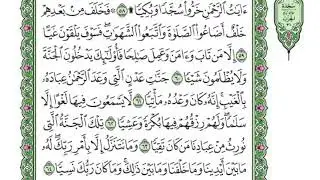 ءَايَٰتُ ٱلرَّحْمَٰنِ خَرُّوا۟ سُجَّدًا وَبُكِيًّا ۩ ٥٨ فَخَلَفَ مِنۢ بَعْدِهِمْ
خَلْفٌ أَضَاعُوا۟ ٱلصَّلَوٰةَ وَٱتَّبَعُوا۟ ٱلشَّهَوَٰتِ فَسَوْفَ يَلْقَوْنَ غَيًّا
٥٩ إِلَّا مَن تَابَ وَءَامَنَ وَعَمِلَ صَٰلِحًا فَأُو۟لَٰٓئِكَ يَدْخُلُونَ ٱلْجَنَّةَ
وَلَا يُظْلَمُونَ شَيْـًٔا ٦٠ جَنَّٰتِ عَدْنٍ ٱلَّتِى وَعَدَ ٱلرَّحْمَٰنُ عِبَادَهُۥ
بِٱلْغَيْبِ إِنَّهُۥ كَانَ وَعْدُهُۥ مَأْتِيًّا ٦١ لَّا يَسْمَعُونَ فِيهَا لَغْوًا إِلَّا
سَلَٰمًا وَلَهُمْ رِزْقُهُمْ فِيهَا بُكْرَةً وَعَشِيًّا ٦٢ تِلْكَ ٱلْجَنَّةُ ٱلَّتِى
نُورِثُ مِنْ عِبَادِنَا مَن كَانَ تَقِيًّا ٦٣ وَمَا نَتَنَزَّلُ إِلَّا بِأَمْرِ رَبِّكَ لَهُۥ
مَا بَيْنَ أَيْدِينَا وَمَا خَلْفَنَا وَمَا بَيْنَ ذَٰلِكَ وَمَا كَانَ رَبُّكَ نَسِيًّا ٦٤